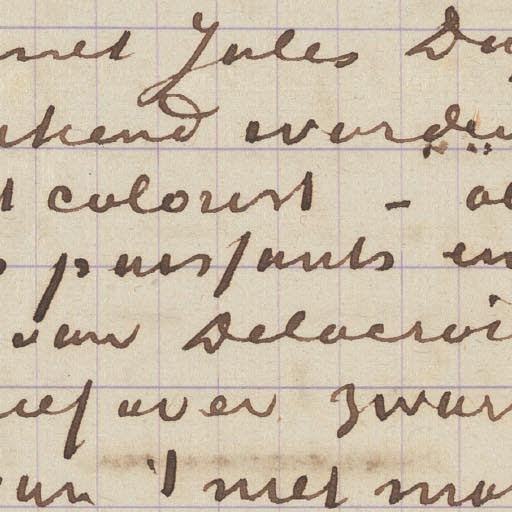 met Jules Du
kend worden
t colorist - al
s puissants en
van Delacroi
ief over zwar
van 't met mo